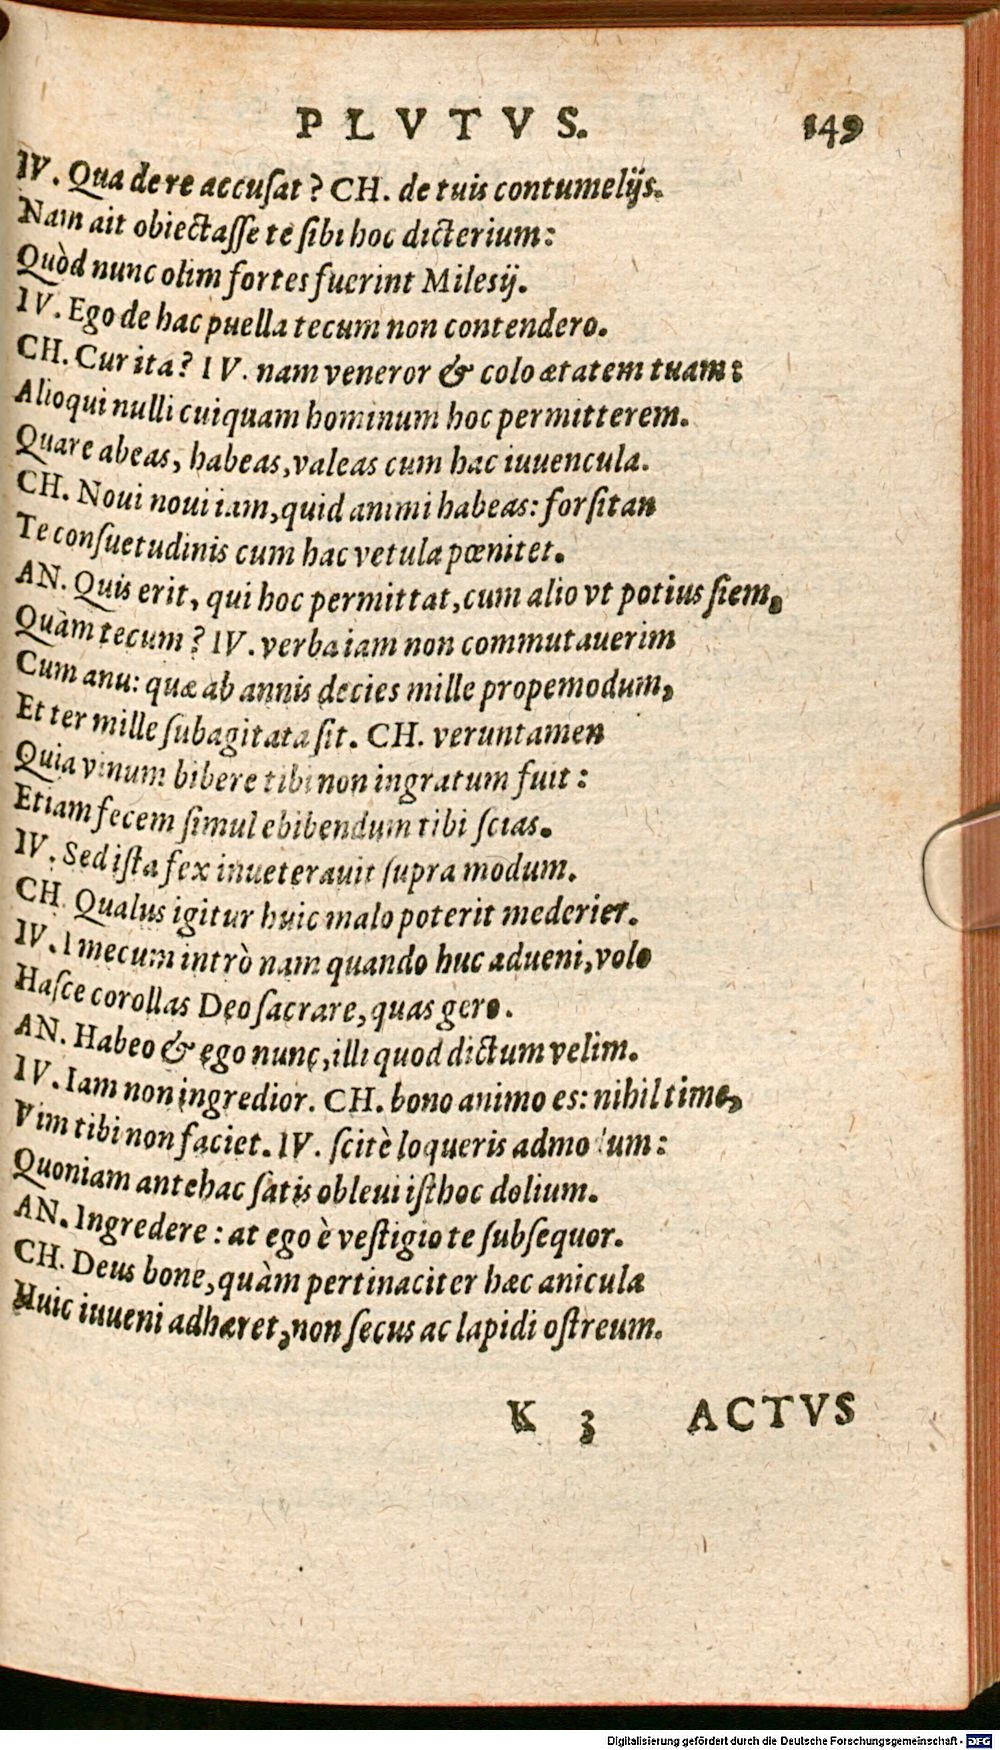 PLVTVS. 149
IV. Qua de re accusat? CH. de tuis contumelijs.
Nam ait obiectasse te sibi hoc dicterium:
Quòd nunc olim fortes fuerint Milesij.
IV. Ego de hac puella tecum non contendero.
CH. Cur ita? IV. nam veneror & colo ætatem tuam:
Alioqui nulli cuiquam hominum hoc permitterem.
Quare abeas, habeas, valeas cum hac iuuencula.
CH. Noui noui iam, quid animi habeas: forsitan
Te consuetudinis cum hac vetula pœnitet.
AN. Quis erit, qui hoc permittat, cum alio vt potius siem,
Quàm tecum? IV. verba iam non commutauerim
Cum anu: quæ ab annis decies mille propemodum,
Et ter mille subagitata sit. CH. veruntamen
Quia vinum bibere tibi non ingratum fuit:
Etiam fecem simul ebibendum tibi scias.
IV. Sed ista fex inueterauit supra modum.
CH. Qualus igitur huic malo poterit mederier.
IV. I mecum intrò nam quando huc adueni, volo
Hasce corollas Deo sacrare, quas gero.
AN. Habeo & ego nunc, illi quod dictum velim.
IV. Iam non ingredior. CH. bono animo es: nihil time,
Vim tibi non faciet. IV. scitè loqueris admodum:
Quoniam antehac satis obleui isthoc dolium.
AN. Ingredere: at ego è vestigio te subsequor.
CH. Deus bone, quàm pertinaciter hæc anicula
Huic iuueni adhæret, non secus ac lapidi ostreum.
K 3 ACTVS
Digitalisierung gefördert durch die Deutsche Forschungsgemeinschaft - DFG